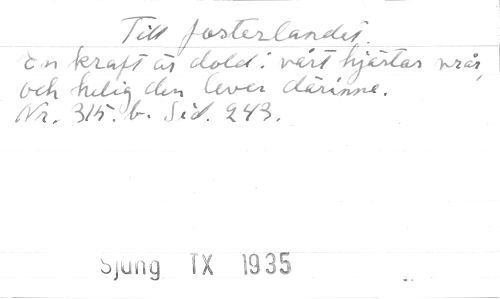 Till fosterlandet.
En kraft är dold i vårt hjärtas vrår,
och helig den lever därinne.
Nr. 315. b. Sid. 243.
Sjung IX 1935